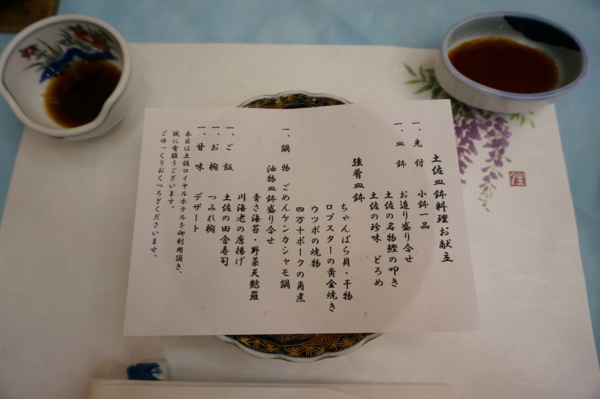 土佐皿鉢料理お献立
一、先付　小鉢一品
一、皿鉢　お造り盛り合せ
土佐の名物鰹の叩き
土佐の珍味　どろめ
強肴皿鉢
ちゃんばら貝・干物
ロブスターの黄金焼き
ウツボの焼物
四万十ポークの角煮
一、鍋物　ごめんケンカシャモ鍋
油物皿鉢盛り合せ
青さ海苔・野菜天麩羅
川海老の唐揚げ
一、ご飯　土佐の田舎寿司
一、お椀　つみれ椀
一、甘味　デザート
本日は土佐ロイヤルホテルを御利用頂き、
誠に有難うございます。
ごゆっくりおくつろぎくださいませ。